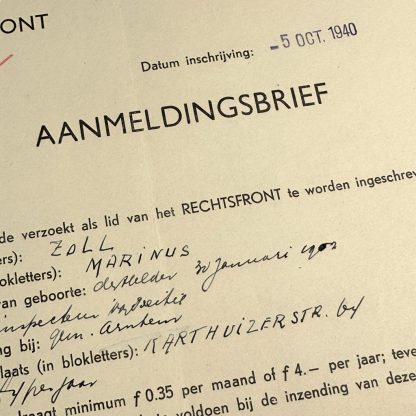 ONT
Datum inschrijving: -5 OCT. 1940
AANMELDINGSBRIEF
de verzoekt als lid van het RECHTSFRONT te worden ingeschrev
ers): ZOLL
lokletters): MARINUS
van geboorte: den Helder 30 januari
inspecteur
ng bij: Gem. Arnhem
laats (in blokletters): KARTHUIZERSTR. 64
per jaar
raagt minimum f 0.35 per maand of f 4.— per jaar; teve
voldoen bij de inzending van deze